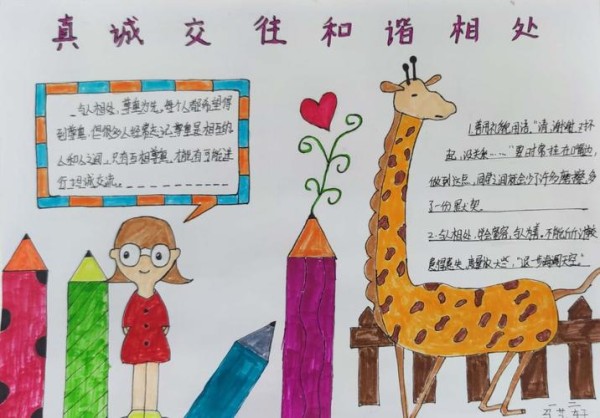 真诚交往和谐相处
与人相处，尊重为先，每个人都希望得
到尊重，但很多人经常忘记，尊重是相互的，
人和人之间，只有互相尊重，才能有可能进
行坦诚交流。
1.常用礼貌用语。"请，谢谢，对不
起，没关系……"要时常挂在嘴边，
做到这点，同学之间就会少了许多摩擦，多
了一份默契。
2.与人相处，学会宽容，与人为善。不能斤斤计较
患得患失，度量放大些，"退一步海阔天空。"